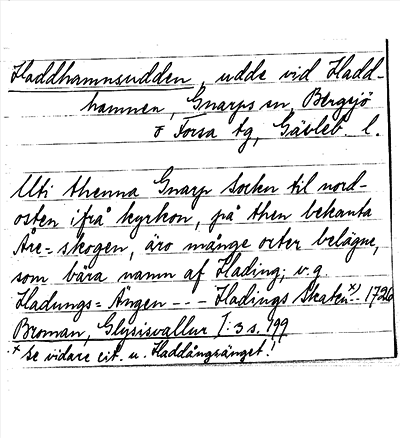 Haddhamnsudden, udde vid Hadd-
hamnen, Gnarps sn, Bergsjö
o Forsa tg, Gävleb. l.
Uti thenna Gnarp Socken til nord-
osten ifrå kyrkon, på then bekanta
Åre-skogen, äro månge orter belägne,
som bära namn af Hading; v.g.
Hadungs=Ängen - - - Hadings Skaten x) - 1726
Broman, Glysisvallur I: 3 s. 199
x se vidare cit. u. Haddångsänget!